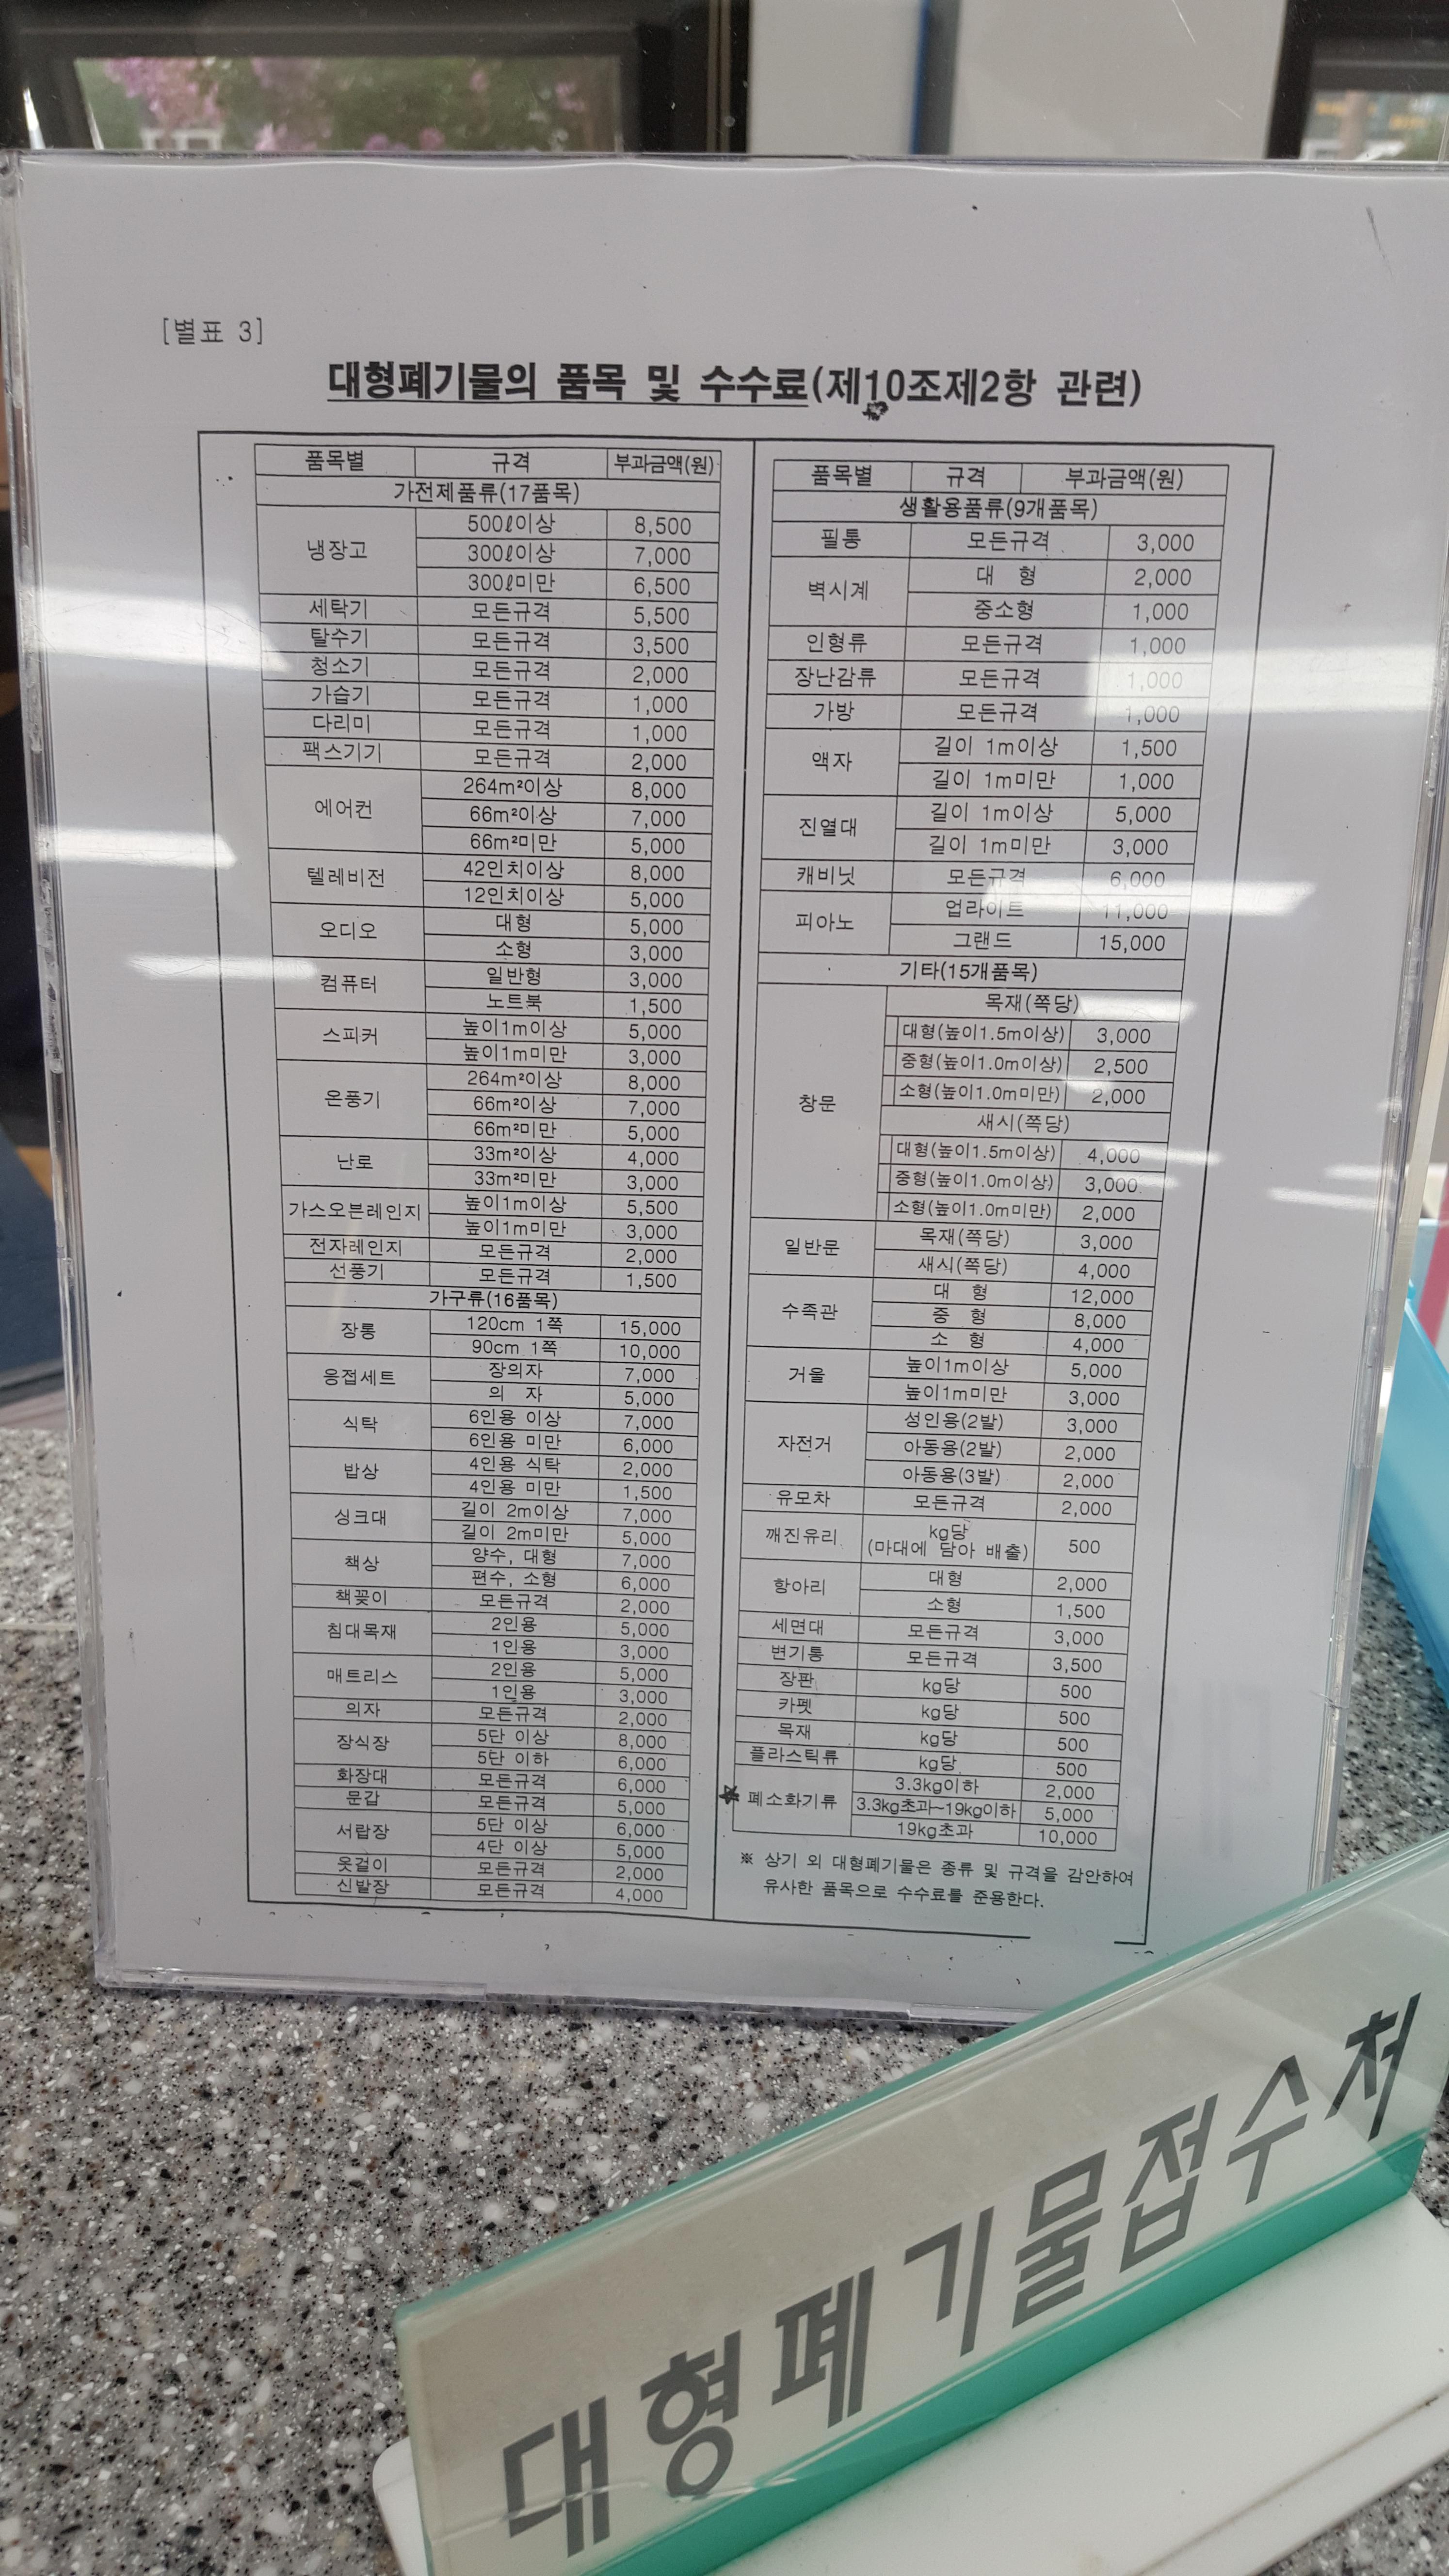 [별표 3]
대형폐기물의 품목 및 수수료(제10조제2항 관련)
품목별 규격 부과금액(원)
가전제품류(17품목)
냉장고 500ℓ이상 8,500
300ℓ이상 7,000
300ℓ미만 6,500
세탁기 모든규격 5,500
탈수기 모든규격 3,500
청소기 모든규격 2,000
가습기 모든규격 1,000
다리미 모든규격 1,000
팩스기기 모든규격 2,000
에어컨 264m²이상 8,000
66m²이상 7,000
66m²미만 5,000
텔레비전 42인치이상 8,000
12인치이상 5,000
오디오 대형 5,000
소형 3,000
컴퓨터 일반형 3,000
노트북 1,500
스피커 높이1m이상 5,000
높이1m미만 3,000
온풍기 264m²이상 8,000
66m²이상 7,000
66m²미만 5,000
난로 33m²이상 4,000
33m²미만 3,000
가스오븐레인지 높이1m이상 5,500
높이1m미만 3,000
전자레인지 모든규격 2,000
선풍기 모든규격 1,500
가구류(16품목)
장롱 120cm 1쪽 15,000
90cm 1쪽 10,000
응접세트 장의자 7,000
의 자 5,000
식탁 6인용 이상 7,000
6인용 미만 6,000
밥상 4인용 식탁 2,000
4인용 미만 1,500
싱크대 길이 2m이상 7,000
길이 2m미만 5,000
책상 양수, 대형 7,000
편수, 소형 6,000
책꽂이 모든규격 2,000
침대목재 2인용 5,000
1인용 3,000
매트리스 2인용 5,000
1인용 3,000
의자 모든규격 2,000
장식장 5단 이상 8,000
5단 이하 6,000
화장대 모든규격 6,000
문갑 모든규격 5,000
서랍장 5단 이상 6,000
4단 이상 5,000
옷걸이 모든규격 2,000
신발장 모든규격 4,000
품목별 규격 부과금액(원)
생활용품류(9개품목)
필통 모든규격 3,000
벽시계 대 형 2,000
중소형 1,000
인형류 모든규격 1,000
장난감류 모든규격 1,000
가방 모든규격 1,000
액자 길이 1m이상 1,500
길이 1m미만 1,000
진열대 길이 1m이상 5,000
길이 1m미만 3,000
캐비닛 모든규격 6,000
피아노 업라이트 11,000
그랜드 15,000
기타(15개품목)
창문 목재(쪽당)
대형(높이1.5m이상) 3,000
중형(높이1.0m이상) 2,500
소형(높이1.0m미만) 2,000
새시(쪽당)
대형(높이1.5m이상) 4,000
중형(높이1.0m이상) 3,000
소형(높이1.0m미만) 2,000
일반문 목재(쪽당) 3,000
새시(쪽당) 4,000
수족관 대 형 12,000
중 형 8,000
소 형 4,000
거울 높이1m이상 5,000
높이1m미만 3,000
자전거 성인용(2발) 3,000
아동용(2발) 2,000
아동용(3발) 2,000
유모차 모든규격 2,000
깨진유리 kg당 (마대에 담아 배출) 500
항아리 대형 2,000
소형 1,500
세면대 모든규격 3,000
변기통 모든규격 3,500
장판 kg당 500
카펫 kg당 500
목재 kg당 500
플라스틱류 kg당 500
폐소화기류 3.3kg이하 2,000
3.3kg초과~19kg이하 5,000
19kg초과 10,000
※ 상기 외 대형폐기물은 종류 및 규격을 감안하여
유사한 품목으로 수수료를 준용한다.
대형폐기물접수처